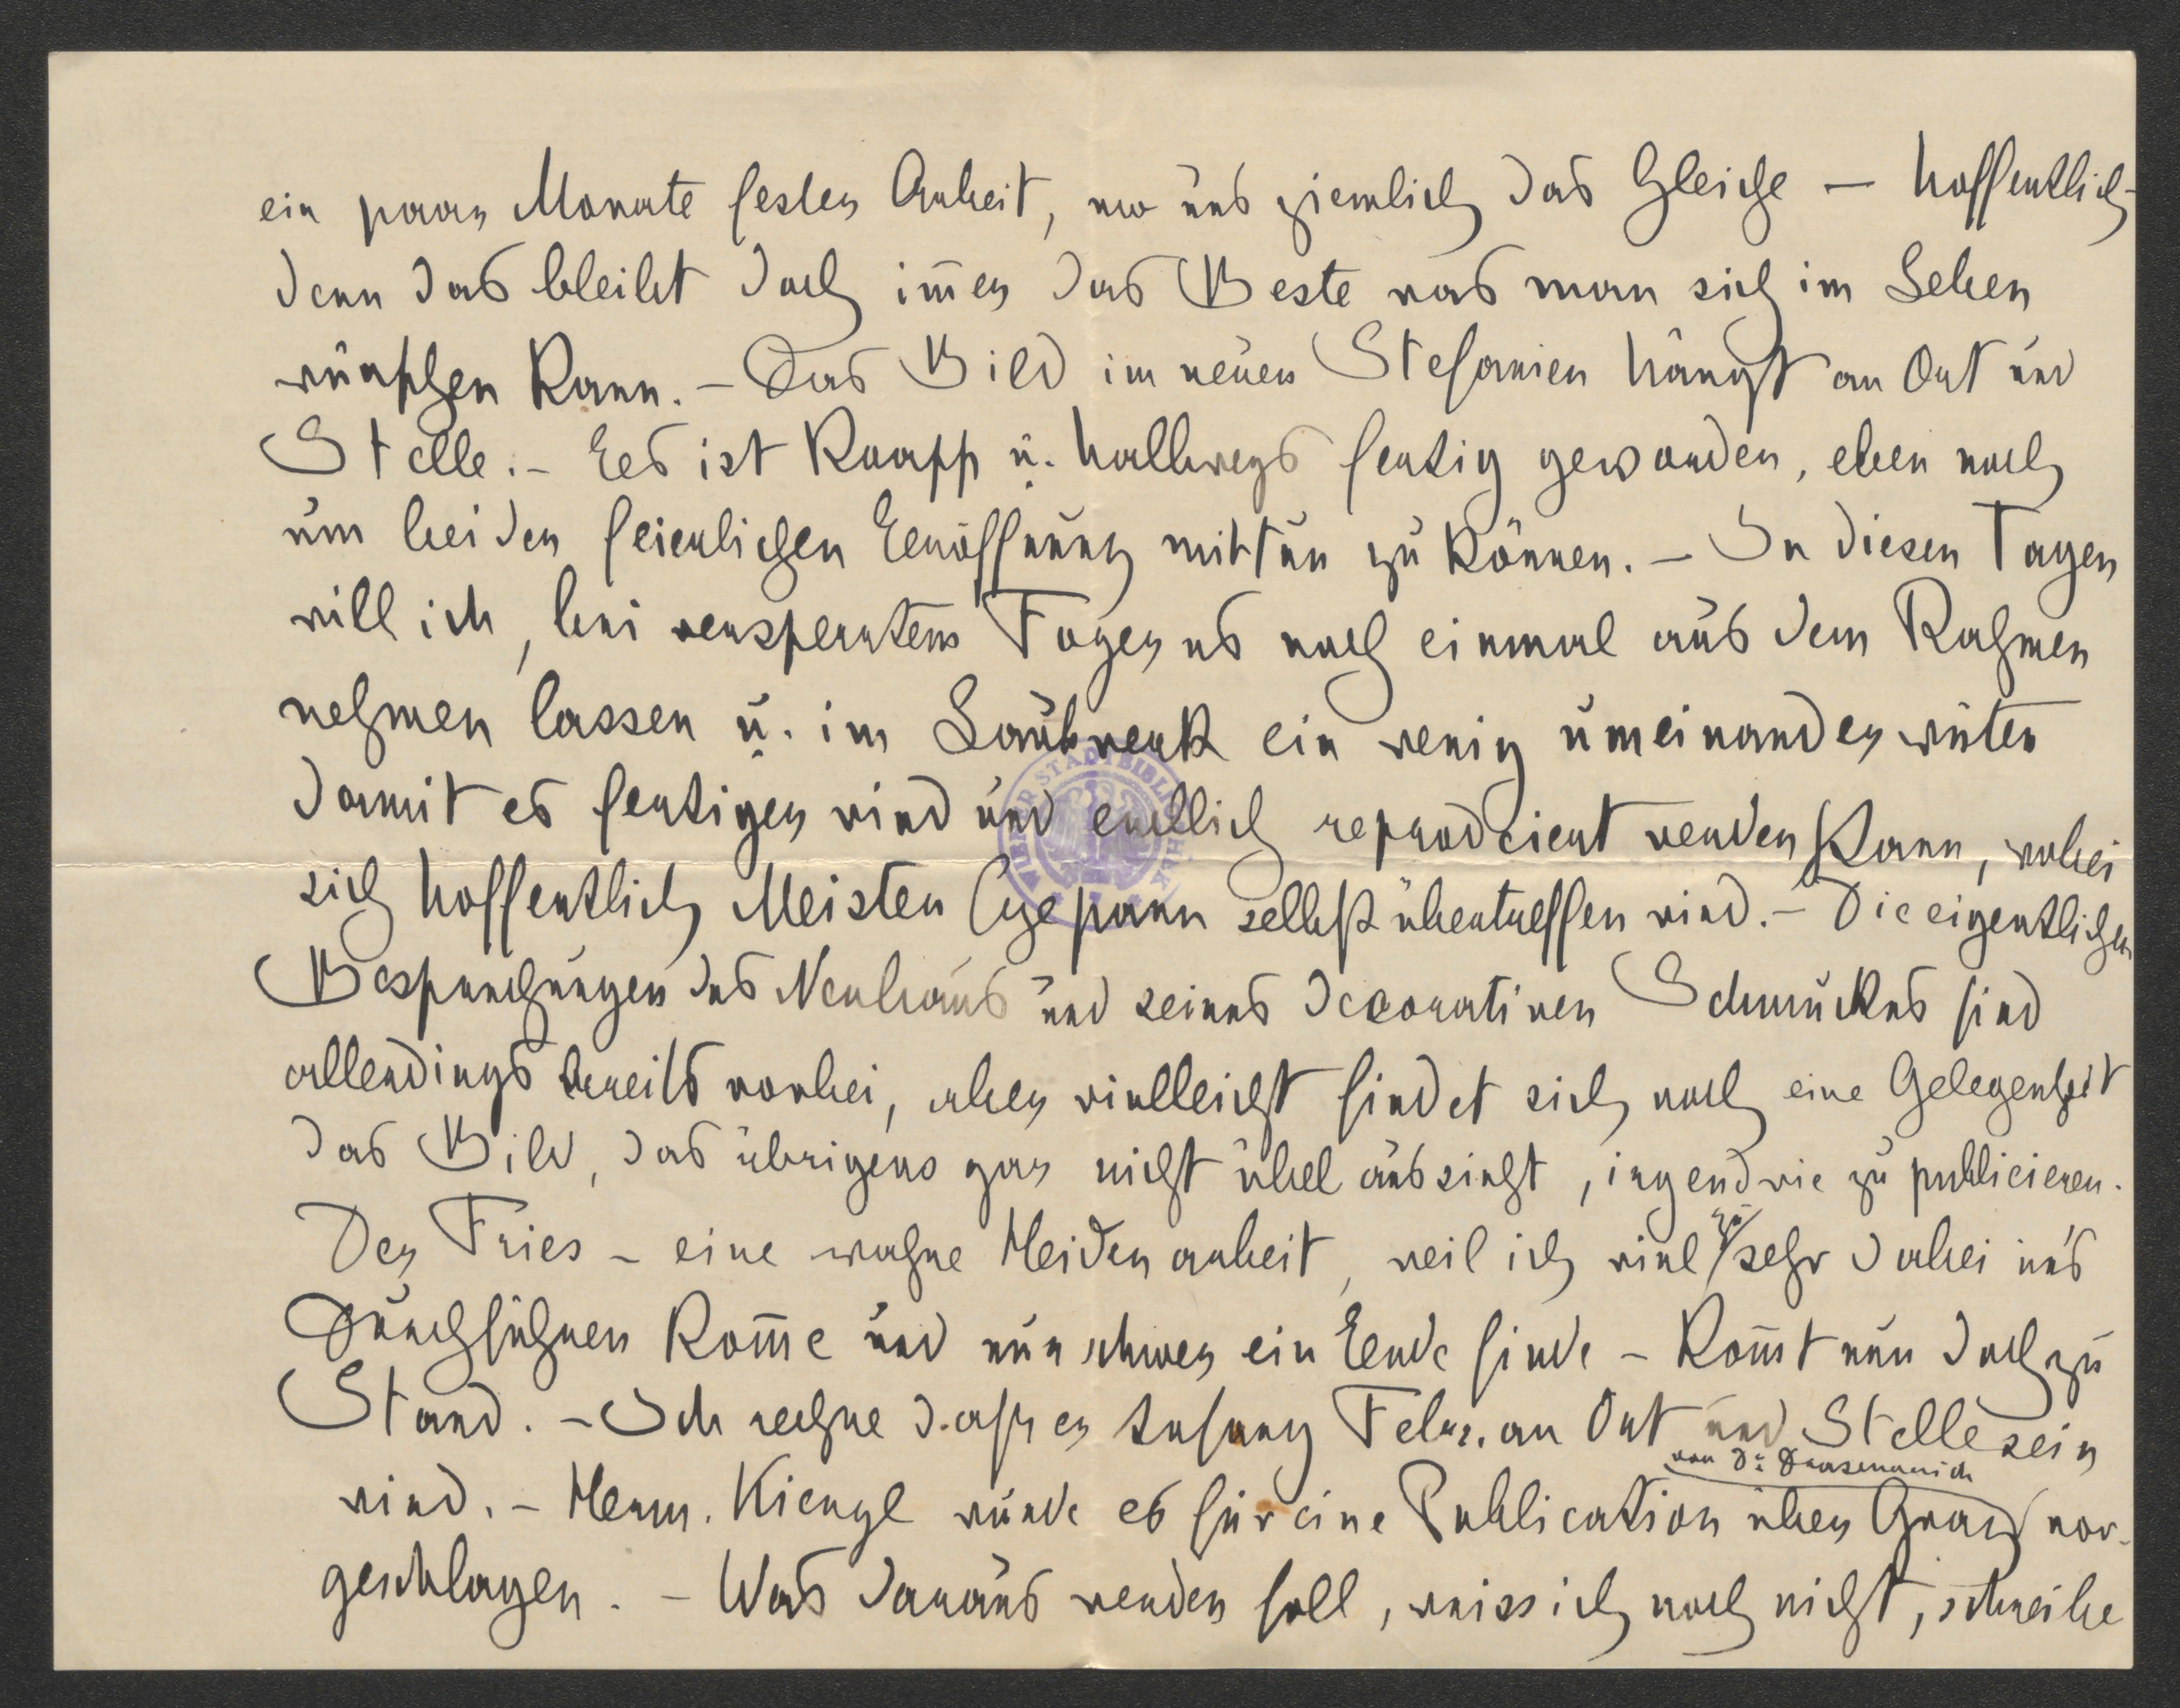 ein paar Monate fester Arbeit, was uns ziemlich das Gleiche – hoffentlich –
denn das bleibt doch im̄er das Beste was man sich im Leben
wünschen kann. – Das Bild im neuen Stefanien hängt an Ort und
Stelle. – Ees ist knapp u. halbwegs fertig geworden, eben noch
um bei der feierlichen Eeröffnung mittun zu können. – In diesen Tagen
will ich, bei versperrtem Foyer es noch einmal aus dem Rahmen
nehmen lassen u. im Laubwerk ein wenig umeinander wüten
damit es fertiger wird und endlich reprodciert werden kann, wobei
sich hoffentlich Meister Angerer selbst übertreffen wird. – Die eigentlichen
Besprechungen des Neubaus und seines decorativen Schmuckes sind
allerdings bereits vorbei, aber vielleicht findet sich noch eine Gelegenheit
das Bild, das übrigens gar nicht übel aussieht, irgendwie zu publicieren.
Der Fries – eine wahre Heidenarbeit, weil ich viel zu sehr dabei in's
Durchführen kom̄e und nun schwer ein Eende finde – kom̄t nun doch zu
Stand. – Ich rechne dass er Anfang Febr. an Ort und Stelle sein
wird. – Herrn. Kienzl wurde es für eine Publication über Graz von Dr. vor-
geschlagen. – Was daraus werden soll, weiss ich noch nicht, schreibe
WIENER STADTBIBLIOTHEK